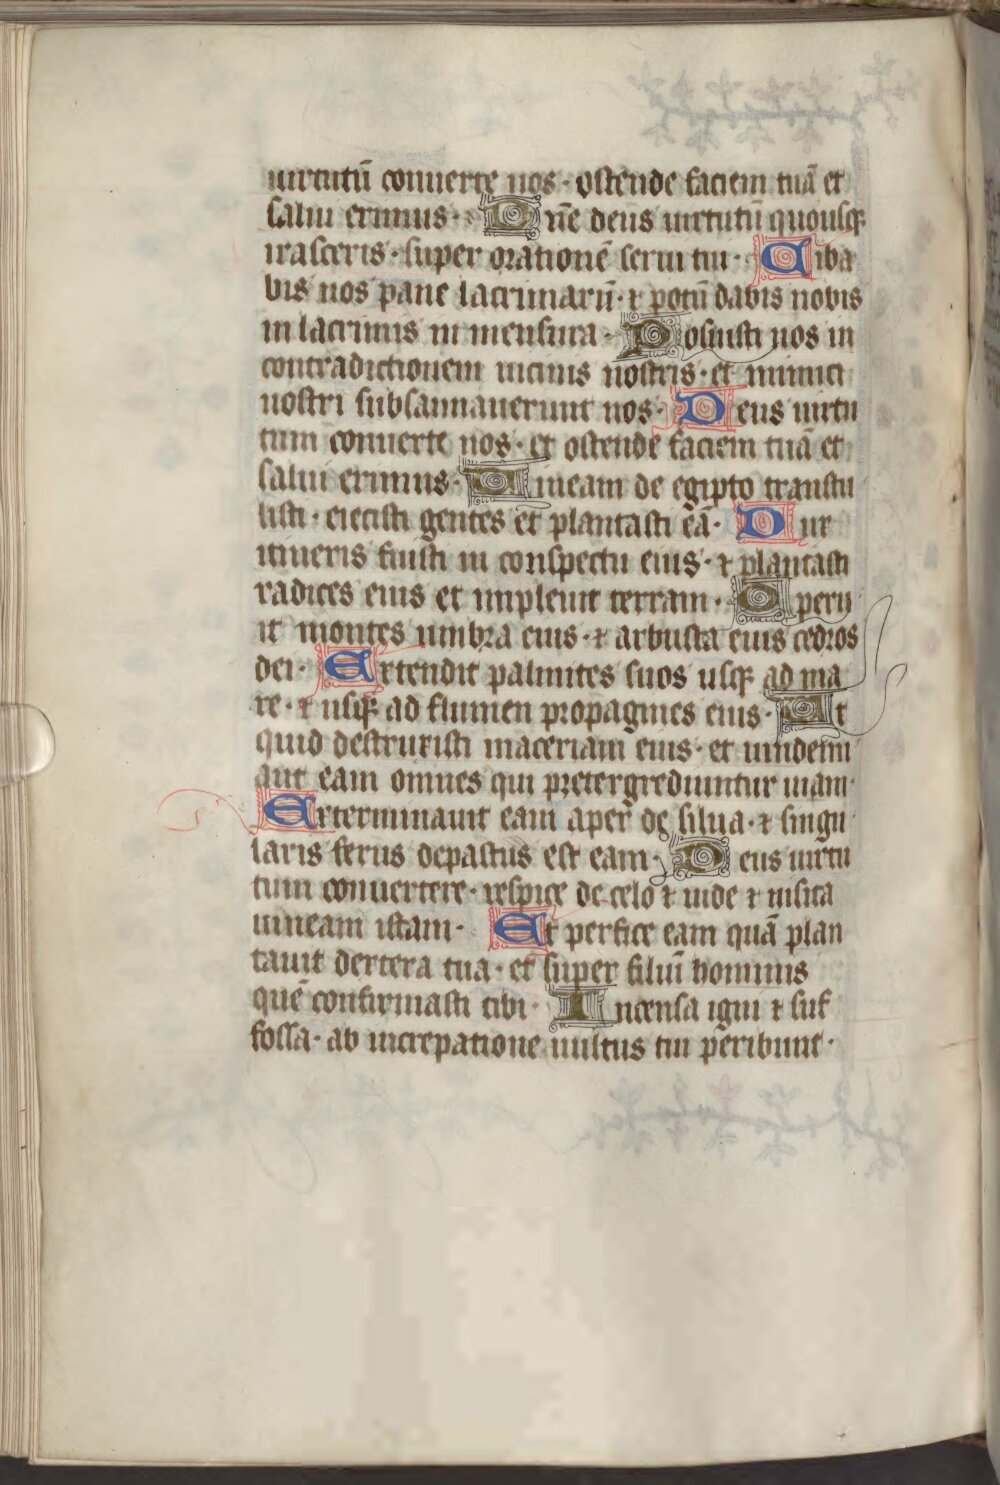 uirtutū conuerte nos · ostende faciem tuā et
salui erimus · Dn̄e deus uirtutū quousq̢
irasceris · super orationē serui tui · Ciba
bis nos pane lacrimarū · ⁊ potū dabis nobis
in lacrimis in mensura · Posuisti nos in
contradictionem uicinis nostris · et inimici
nostri subsannauerunt nos · Deus uirtu
tum conuerte nos · et ostende faciem tuā et
salui erimus · Uineam de egipto transtu
listi · eiecisti gentes et plantasti eā · Dux
itineris fuisti in conspectu eius · ⁊ plantasti
radices eius et impleuit terram · Operu
it montes umbra eius · ⁊ arbusta eius cedros
dei · Extendit palmites suos usq̢ ad ma
re · ⁊ usq̢ ad flumen propagines eius · Ut
quid destruxisti maceriam eius · et uindemi
ant eam omnes qui pretergrediuntur uiam ·
Exterminauit eam aper de silua · ⁊ singu
laris ferus depastus est eam · Deus uirtu
tum conuertere · respice de celo ⁊ uide ⁊ uisita
uineam istam · Et perfice eam quā plan
tauit dextera tua · et super filiū hominis
quē confirmasti tibi · Incensa igni ⁊ suf
fossa · ab increpatione uultus tui peribunt ·